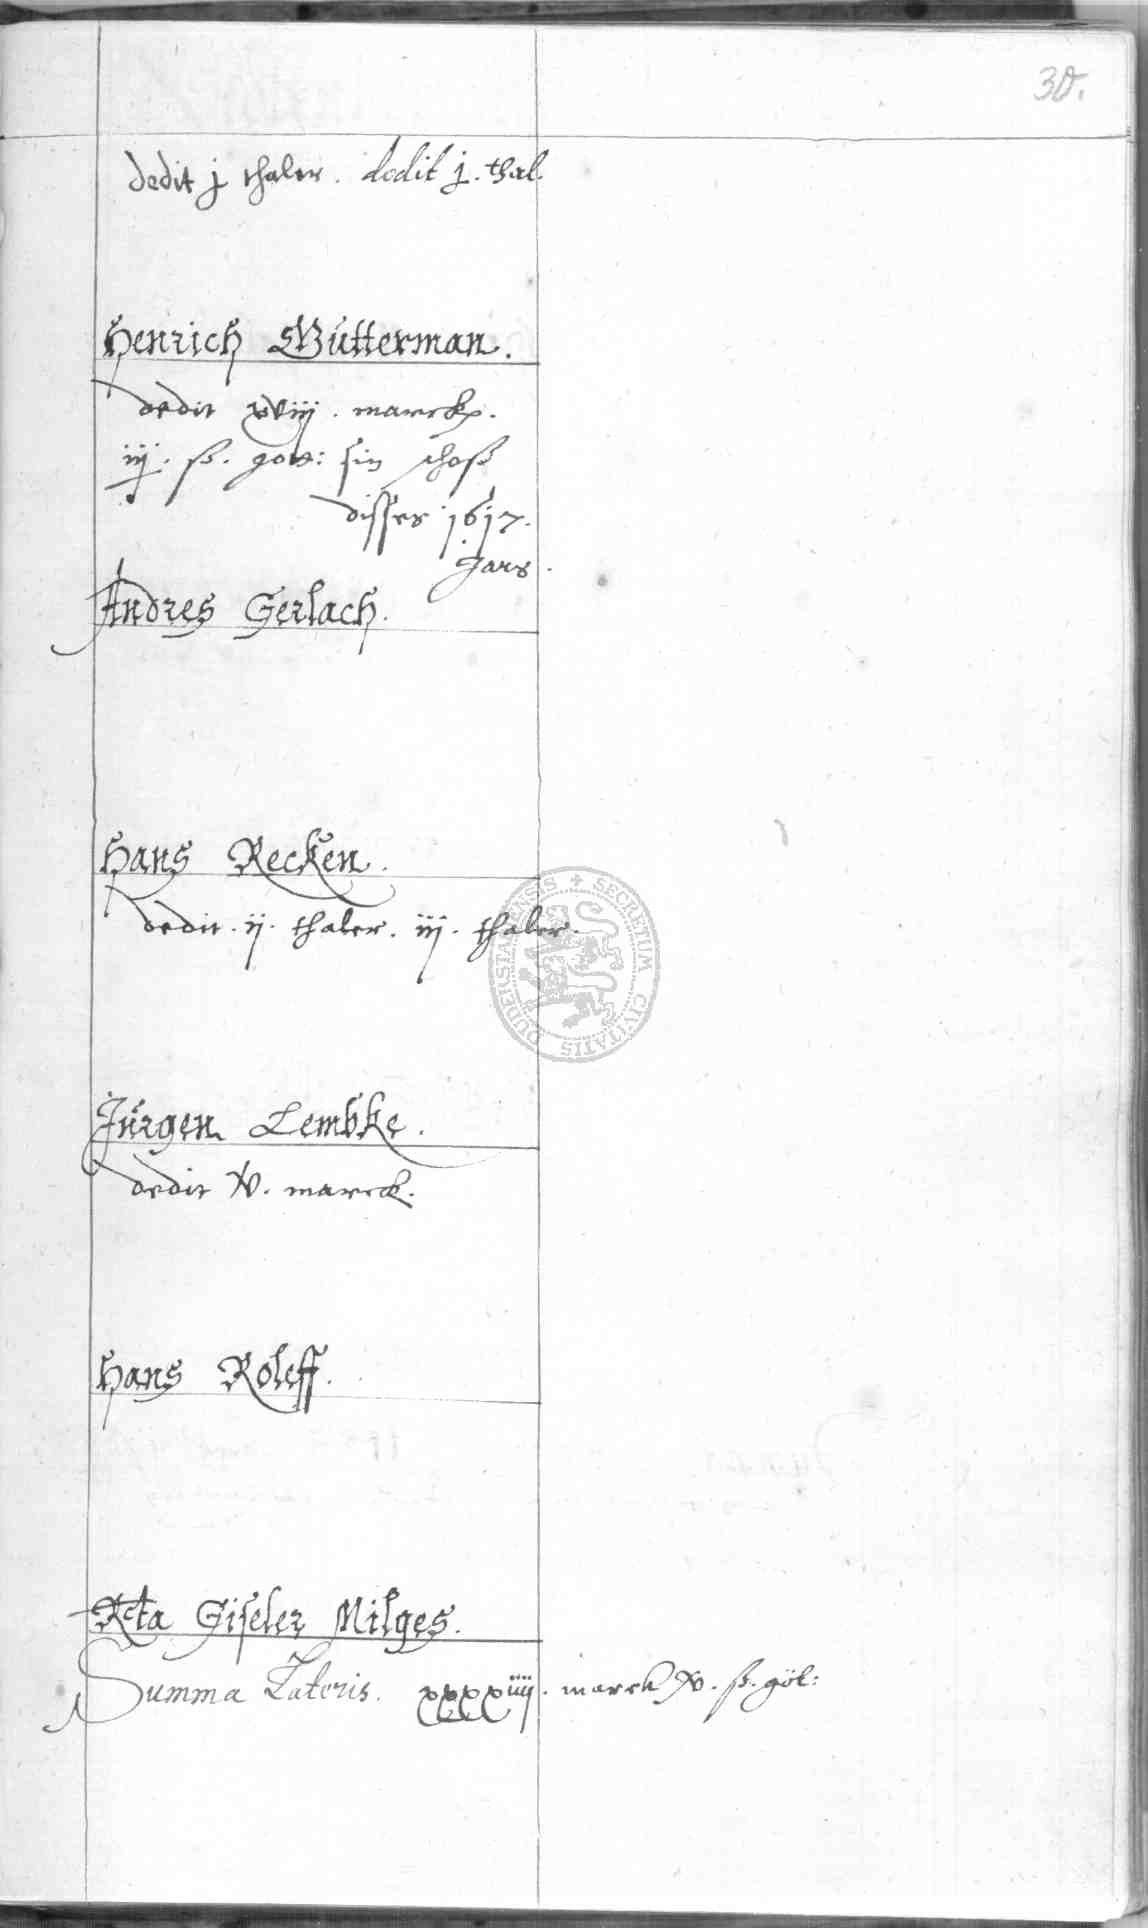 30.
dedit j thaler. dedit j. thal.
Henrich Wutterman.
dedit xviij. marck.
iij. ß. gott: sin schoß
disses 1617.
Jars.
Andres Gerlach.
Hans Recken.
dedit. ij. thaler. iij. thaler.
Jurgen Lembke.
dedit V. marck.
Hans Roleff.
Rcta Giseler Milges.
Summa Lateris. xxxxiiij. marck V. ß. göt:
SECRETUM CIVITATIS DUDERSTADENSIS